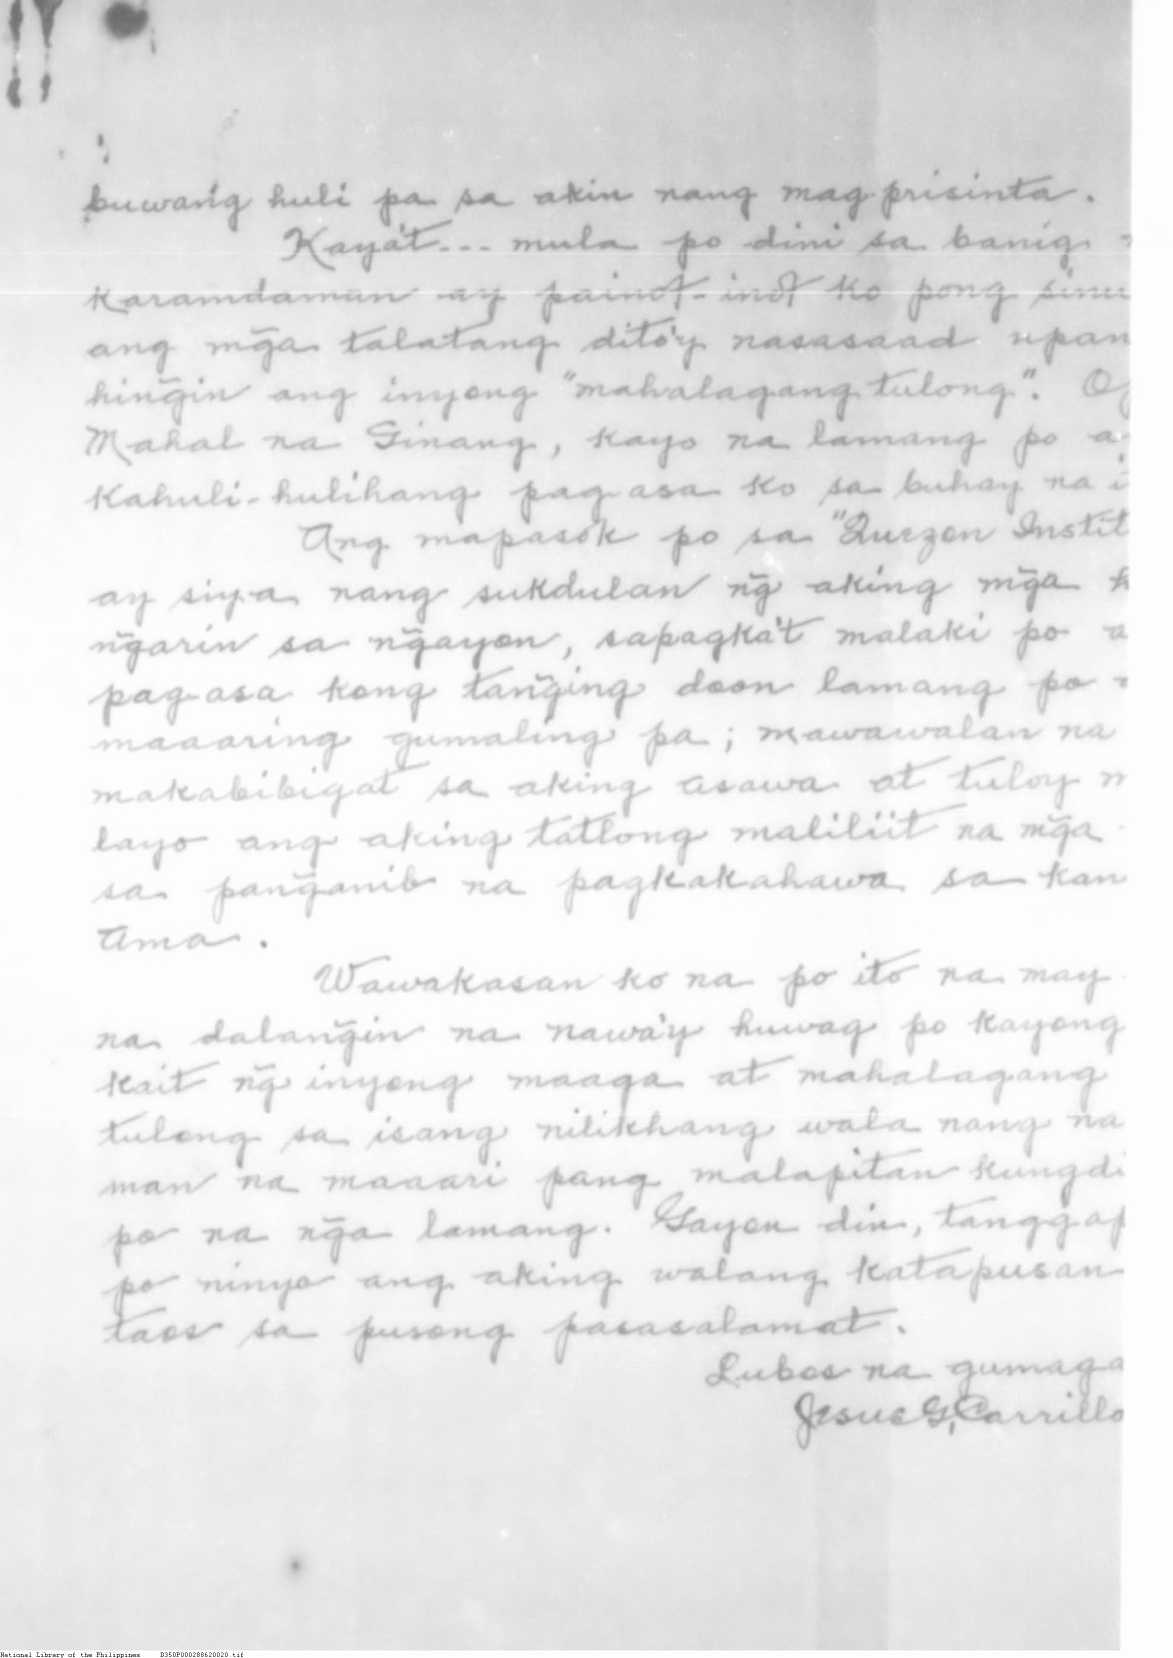 buwang huli pa sa akin nang mag-prisinta.
Kaya't--- mula po dini sa banig
karamdaman ay painot-inot ko pong sinu
ang mg̃a talatang dito'y nasasaad upan
hing̃in ang inyong "mahalagang tulong".
Mahal na Ginang, kayo na lamang po a
kahuli-hulihang pag-asa ko sa buhay na i
Ang mapasok po sa "Quezon Instit
ay siya nang sukdulan ng̃ aking mg̃a h
ng̃arin sa ng̃ayon, sapagka't malaki po a
pag-asa kong tang̃ing doon lamang po
maaaring gumaling pa; mawawalan na
makabibigat sa aking asawa at tuloy m
layo ang aking tatlong maliliit na mg̃a
sa pang̃anib na pagkakahawa sa kan
Ama.
Wawakasan ko na po ito na may
na dalang̃in na nawa'y huwag po kayong
kait ng̃ inyong maaga at mahalagang
tulong sa isang nilikhang wala nang na
man na maaari pang malapitan kungdi
po na ng̃a lamang. Gayon din, tanggap
po ninyo ang aking walang katapusan
taos sa pusong pasasalamat.
Lubos na gumaga
Jesus G. Carrillo
National Library of the Philippines D350P000288620020.tif